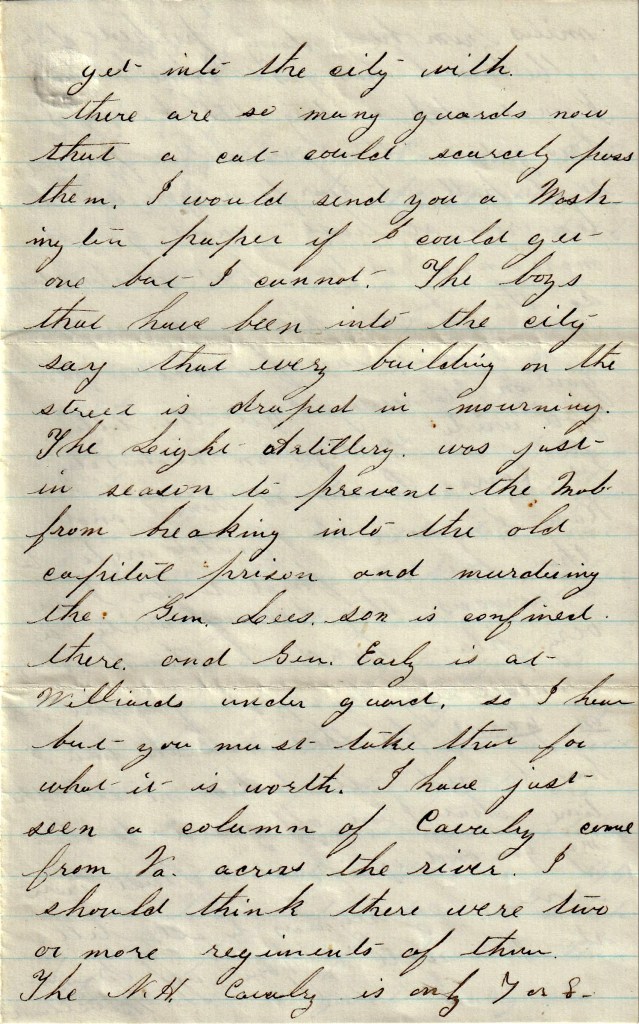 get into the city with.
there are so many guards now
that a cat could scarcely pass
them. I would send you a Wash-
ington paper if I could get
one but I cannot. The boys
that have been into the city
say that every building on the
street is draped in mourning.
The Light Artillery. was just
in season to prevent the Mob
from breaking into the old
capitol prison and murdering
the Gen. Lees. son is confined.
there. and Gen. Early is at
Williards under guard. so I hear
but you must take that for
what it is worth. I have just
seen a column of Cavalry come
from Va. across the river. I
should think there were two
or more regiments of them.
The N.H. Cavalry is only 7 or 8-